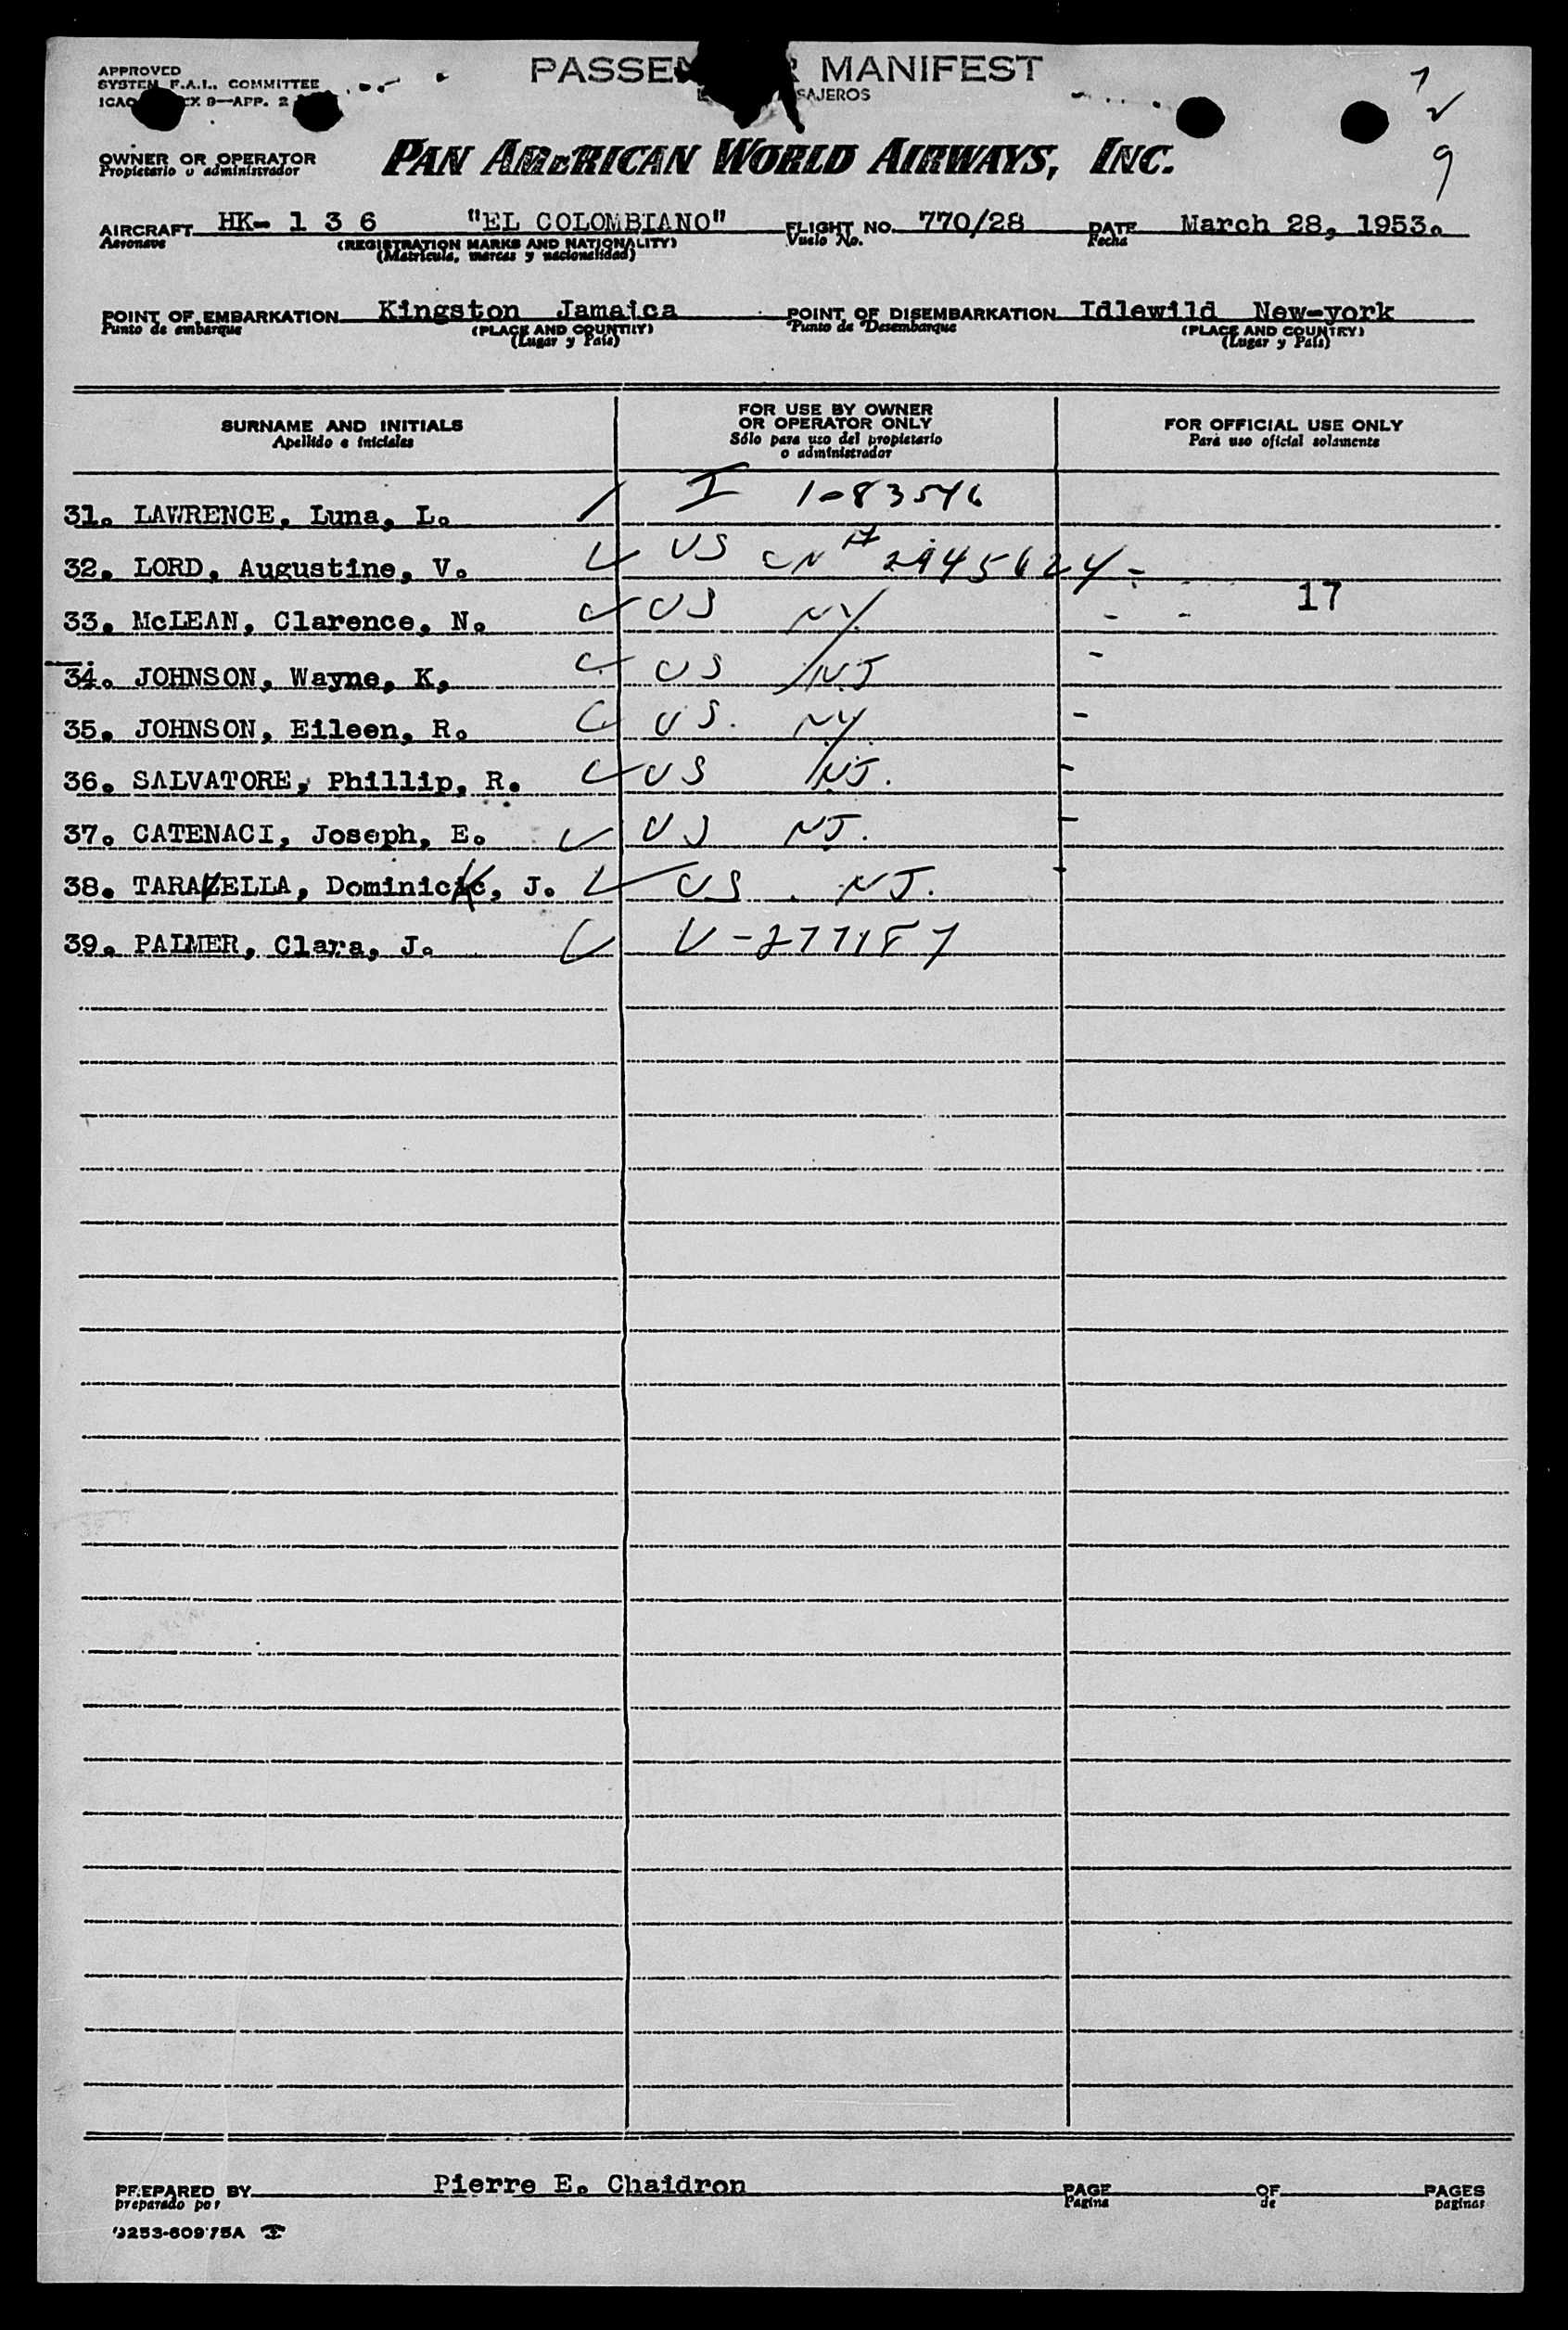 APPROVED
SYSTEM F.A.L. COMMITTEE
9—APP. 2
PASSE MANIFEST
SAJEROS
7
9
OWNER OR OPERATOR
Propietario o administrador
PAN AMERICAN WORLD AIRWAYS, INC.
AIRCRAFT HK- 1 3 6 "EL COLOMBIANO" FLIGHT NO. 770/28 DATE March 28, 1953.
Aeronave (REGISTRATION MARKS AND NATIONALITY) Vuelo No. Fecha
(Matricula, marcas y nacionalidad)
POINT OF EMBARKATION Kingston Jamaica POINT OF DISEMBARKATION Idlewild New-york
Punto de embarque (PLACE AND COUNTRY) Punto de Desembarque (PLACE AND COUNTRY)
(Lugar y País) (Lugar y País)
SURNAME AND INITIALS FOR USE BY OWNER OR OPERATOR ONLY FOR OFFICIAL USE ONLY
Apellido e iniciales Sólo para uso del propietario o administrador Para uso oficial solamente
31. LAWRENCE, Luna, L. I 1083546
32. LORD, Augustine, V. US CN # 2945624
17
33. McLEAN, Clarence, N. US NY
34. JOHNSON, Wayne, K, US NJ
35. JOHNSON, Eileen, R. US. NY
36. SALVATORE, Phillip, R. US NJ.
37. CATENACI, Joseph, E. US NJ.
38. TARAZELLA, Dominick, J. US NJ.
39. PALMER, Clara, J. V-277187
PREPARED BY Pierre E. Chaidron PAGE OF PAGES
preparado por Pagina de paginas